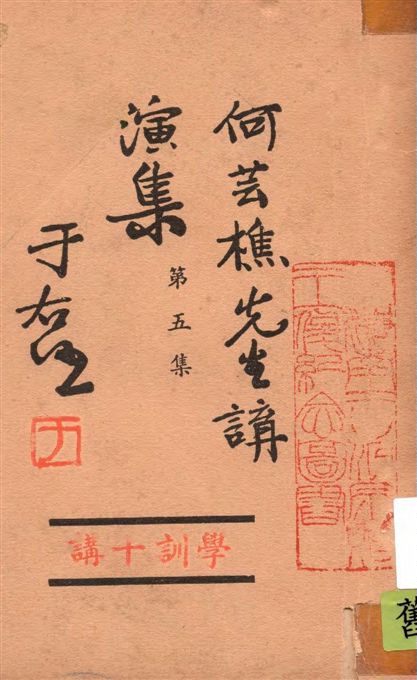 何芸樵先生講
演集
第五集
于右任
學訓十講
舊